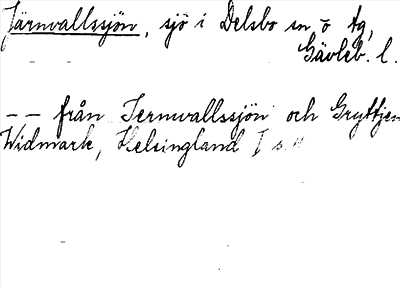 Järnvallssjön, sjö i Delsbo sn o tg,
Gävleb. l.
- - från Jernvallssjön och Gryttjen
Widmark, Helsingland I s.